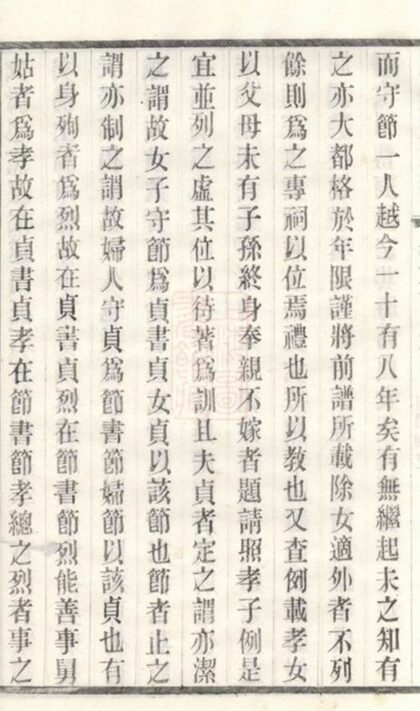 而守節一人越今一十有八年矣有無繼起未之知有
之亦大都格於年限謹將前譜所載除女適外者不列
餘則為之專祠以位焉禮也所以教也又查例載孝女
以父母未有子孫終身奉親不嫁者題請照孝子例是
宜並列之虛其位以待著為訓且夫貞者定之謂亦潔
之謂故女子守節為貞書貞女貞以該節也節者止之
謂亦制之謂故婦人守貞為節書節婦節以該貞也有
以身殉者為烈故在貞書貞烈在節書節烈能善事舅
姑者為孝故在貞書貞孝在節書節孝總之烈者事之